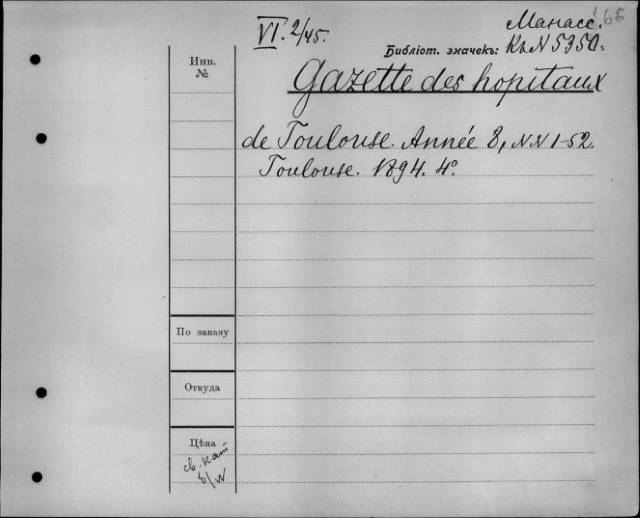 VI. 2/45.
Манасс.
Библіот. значекъ: К. N 5350.
Инв.
№
Gazette des hopitaux
de Toulouse. Année 8, NN 1-52.
Toulouse. 1894. 4°.
По заказу
Откуда
Цѣна
св. кат
8/IV